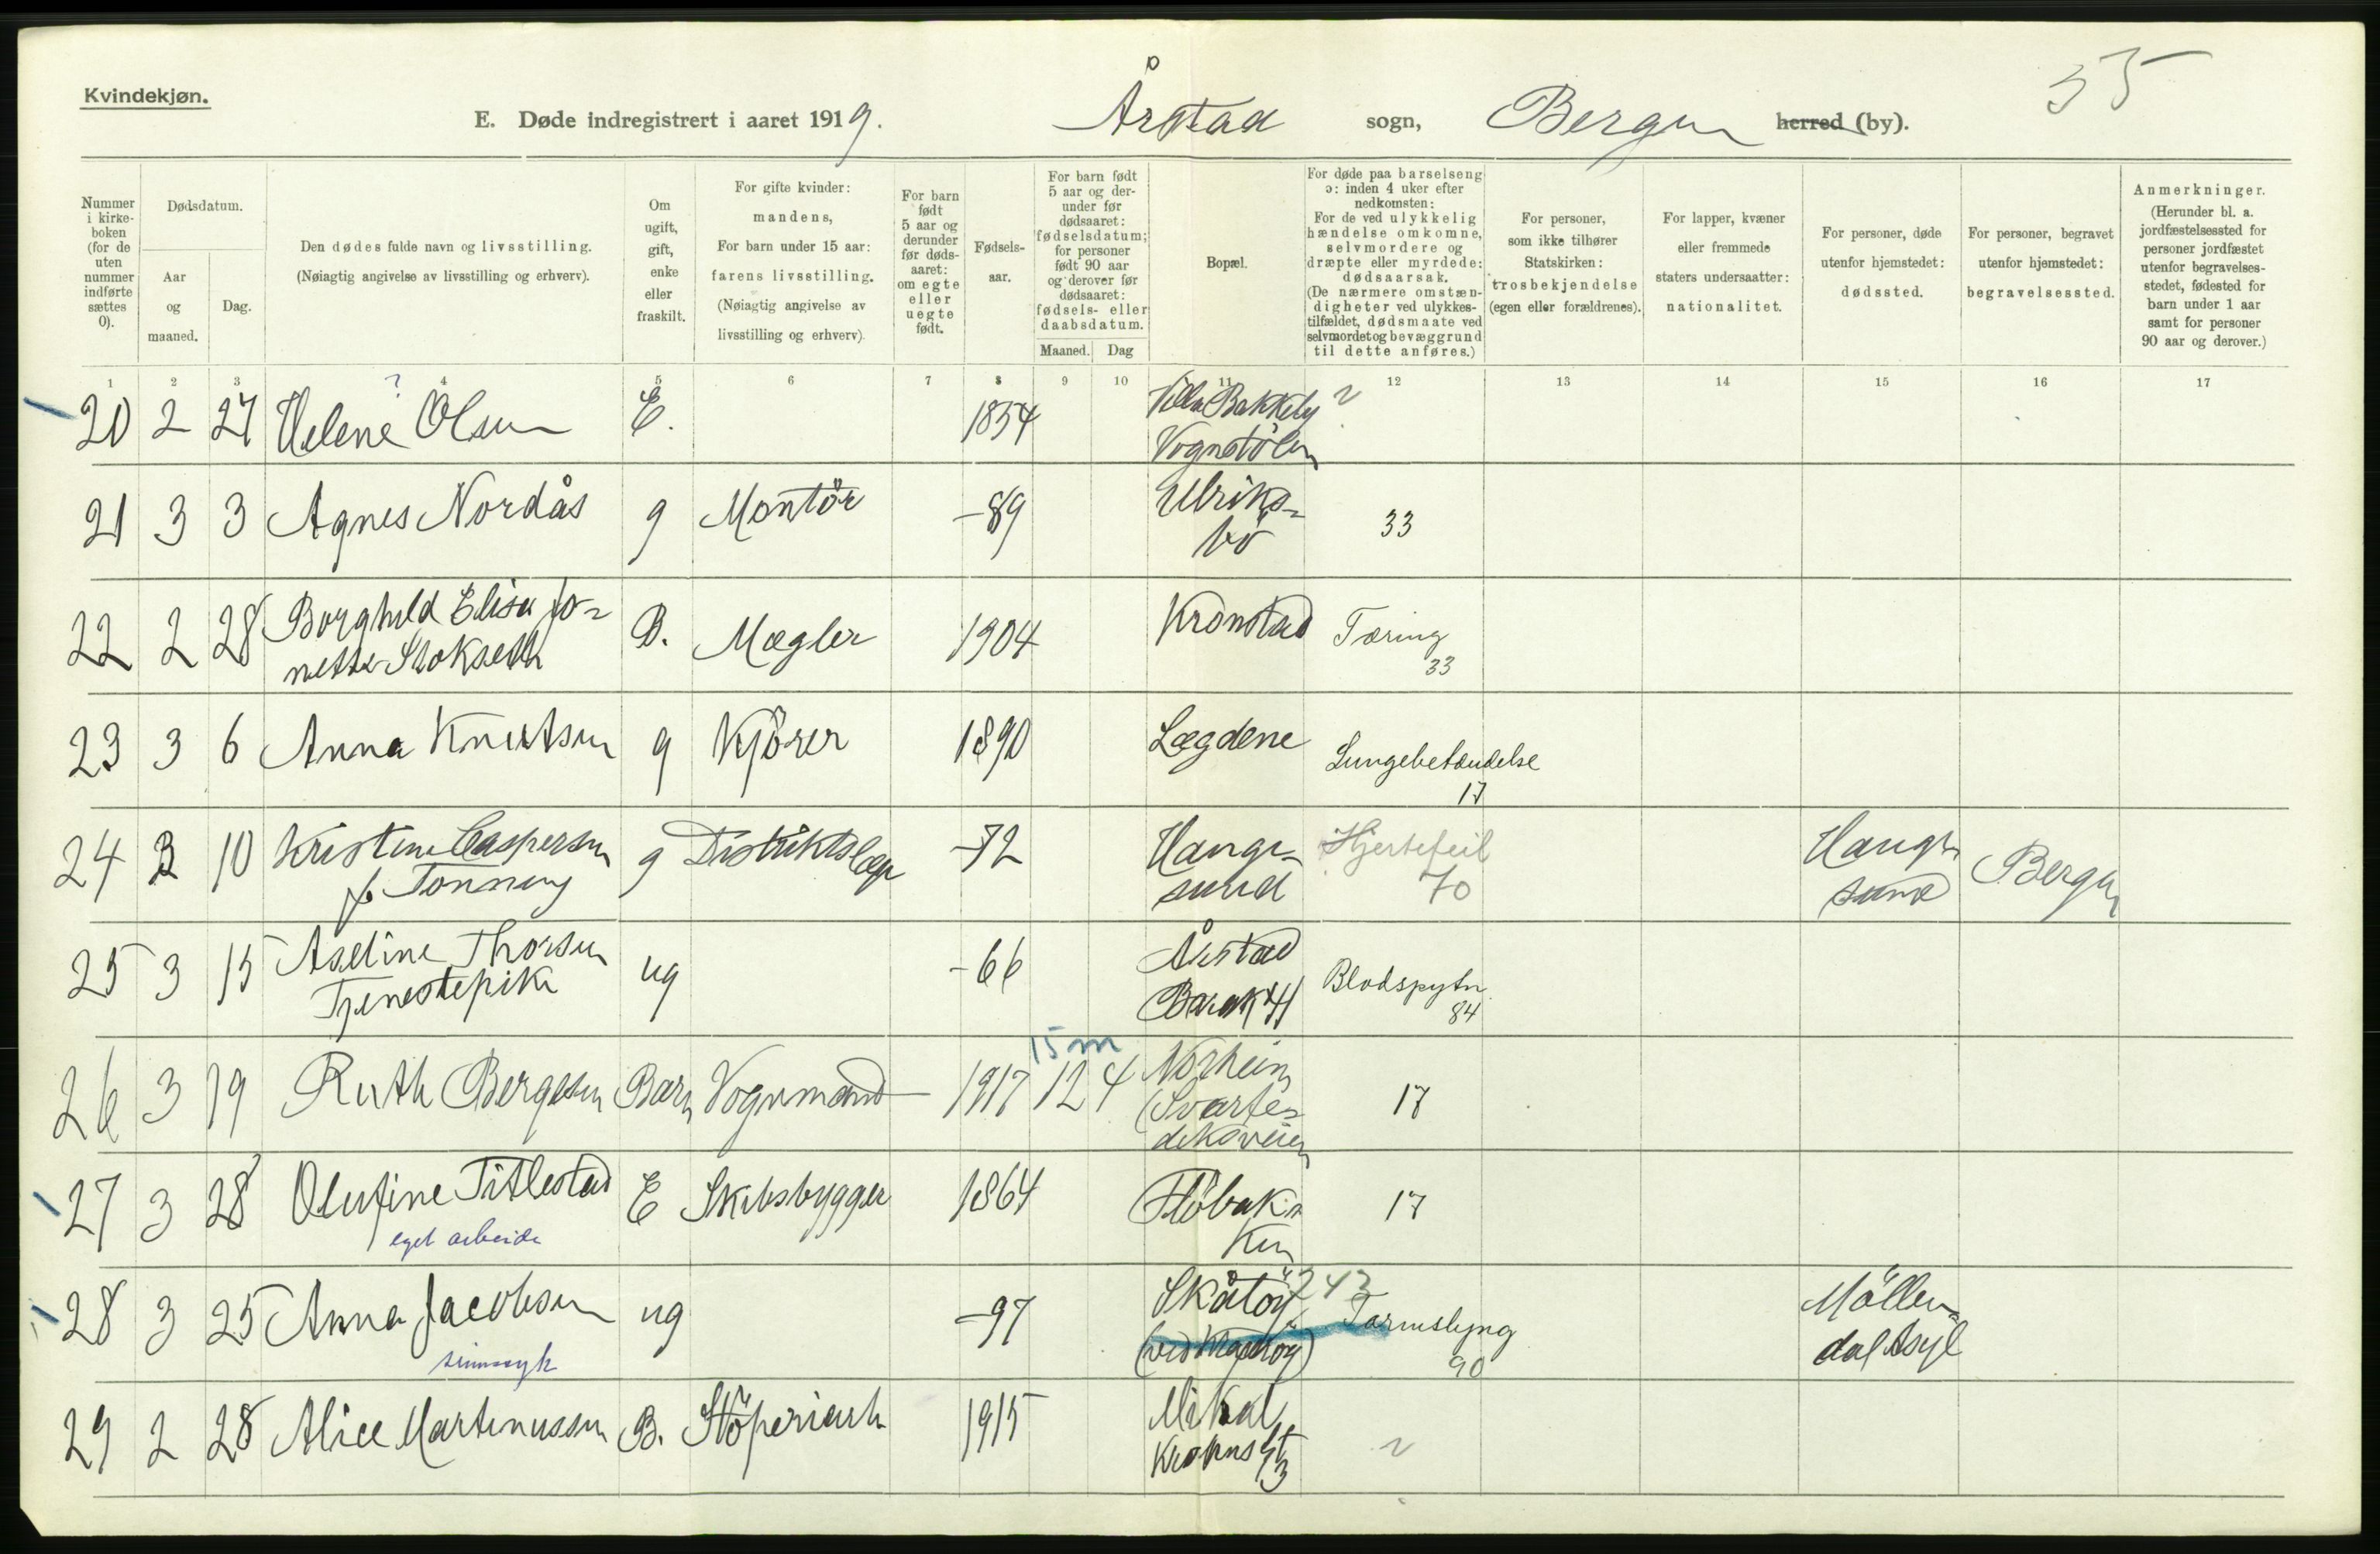 Kvindekjøn.
E. Døde indregistrert i aaret 1919. Årstad sogn, Bergen herred (by). 35
Nummer i kirke-boken (for de uten nummer indførte sættes 0).
Dødsdatum.
Aar og maaned.
Dag.
Den dødes fulde navn og livsstilling.
(Nøiagtig angivelse av livsstilling og erhverv).
Om ugift, gift, enke eller fraskilt.
For gifte kvinder:
mandens,
For barn under 15 aar:
farens livsstilling.
(Nøiagtig angivelse av
livsstilling og erhverv).
For barn født 5 aar og derunder før døds-aaret: om egte eller uegte født.
Fødsels-aar.
For barn født 5 aar og der-under før dødsaaret: fødselsdatum; for personer født 90 aar og derover før dødsaaret: fødsels- eller daabsdatum.
Maaned. Dag
Bopæl.
For døde paa barselseng ɔ: inden 4 uker efter nedkomsten:
For de ved ulykkelig hændelse omkomne, selvmordere og dræpte eller myrdede: dødsaarsak.
(De nærmere omstæn-digheter ved ulykkes-tilfældet, dødsmaate ved selvmordet og bevæggrund til dette anføres.)
For personer, som ikke tilhører Statskirken: trosbekjendelse (egen eller forældrenes).
For lapper, kvæner eller fremmede staters undersaatter: nationalitet.
For personer, døde utenfor hjemstedet: dødssted.
For personer, begravet utenfor hjemstedet: begravelsessted.
Anmerkninger.
(Herunder bl. a. jordfæstelsessted for personer jordfæstet utenfor begravelses-stedet, fødested for barn under 1 aar samt for personer 90 aar og derover.)
1 2 3 4 5 6 7 8 9 10 11 12 13 14 15 16 17
20 2 27 Helene Olsen E. 1854 Villa Bakkely ?
Vognstölen
21 3 3 Agnes Nordås g Montör -89 Ulriks-
bö 33
22 2 28 Borghild Elisa Jo-
nette Stokseth B. Mægler 1904 Kronstad Tæring
33
23 3 6 Anna Knutsen g Kjörer 1890 Lægdene Lungebetændelse
17
24 3 10 Kristine Caspersen g Distriktslæge -72 Hauge-
sund Hjertefeil Hauge-
sund Bergen
f. Tonning 70
25 3 15 Aseline Thorsen ug -66 Årstad
Tjenestepike Barak 4 Blodspytn.
84
15 m
26 3 19 Ruth Bergesen Barn Vognmand 1917 12 4 Norheim
(Svarte-
diksveien 17
27 3 28 Olufine Titlestad E Skibsbygger 1864 Flöbak-
ken 17
eget arbeide
28 3 25 Anna Jacobsen ug -97 Skåtöy 243 Tarmslyng
90 Möllen-
dal Asyl
sinnssyk (ved Kragerö)
29 2 28 Alice Martinussen B. Stöperiarb 1915 Mikal
Krohnsgt
3